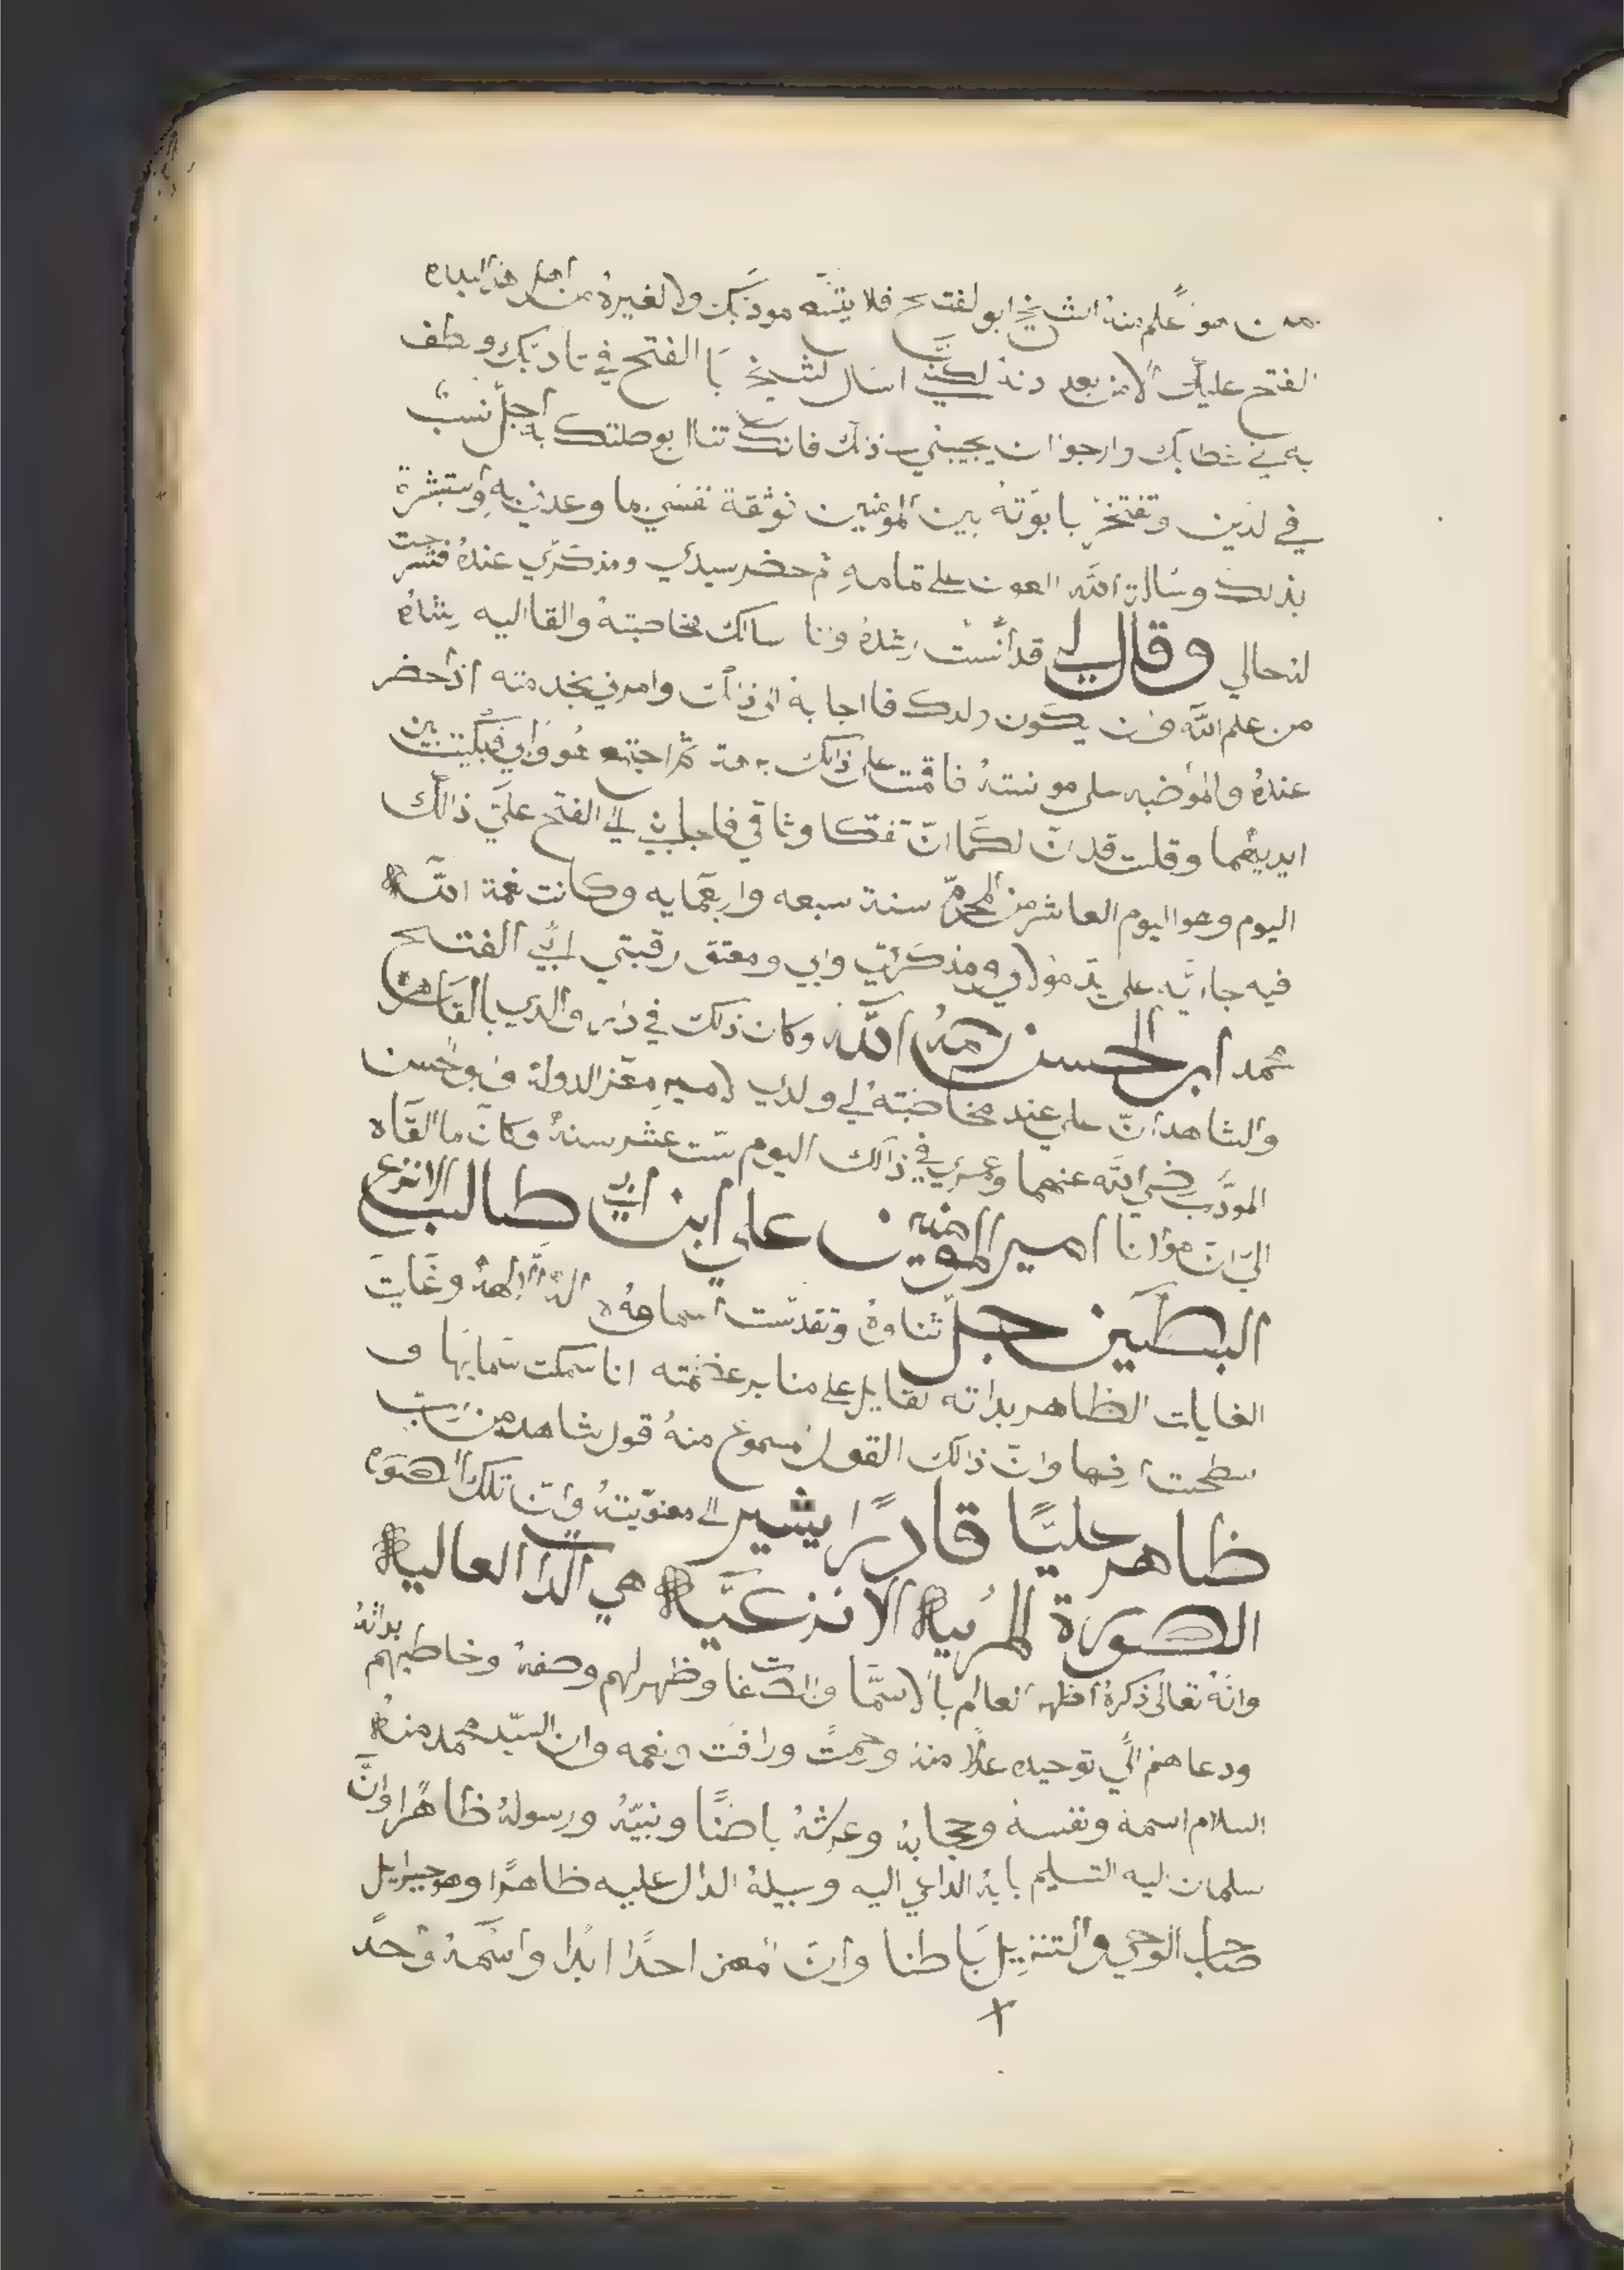 من هو علم منه الشيخ ابو لفتح فلا يتسع مودبك ولا لغيره من اهل هذا البلده
الفتح عليك الا من بعد لكني اسال لشيخ با الفتح في تاديبك وطف
به في خطابك وارجوا ان يجيبني ذلك فانك تنال بوصلتك به اجل نسب
في لدين وتفتخر بابوته بين المومنين ثوثقة نفسي بما وعدني به واستبشرة
بذلك وسالت الله العون على تمامه ثم حضر سيدي ومذكري عنده فتسرحت
لنحالي وقال لي قد أنست رشده وانا سالك مخاطبته والقا اليه رشاه
من علم الله فان يكون ولدك فا اجابه الى ذالك وامرني بخدمته اذا حضر
عنده والموضبه على موانسته فاقمت على ذالك مدة ثم اجتمع هو وابي فبكيت بين
ايديهما وقلت قد ان لكما ان تفكا وثاقي فاجاباني الى الفتح علي ذالك
اليوم وهو اليوم العاشر من المحرم سنة سبعه واربعمايه وكانت نعمة الله
فيه جاريه على يد مولاي ومذكري وابي ومعتق رقبتي ابي الفتح
محمد ابن الحسن رحمه الله وكان ذلك في دار والدي بالقاهرة
والشاهدان علي عند مخاطبته لي ولدي لامير معز الدولة وابو لحسن
المودب رضي الله عنهما وعمري في ذالك اليوم ست عشر سنة وكان ما القاه
الي ان مولانا امير المومنين علي ابن ابي طالب الانزع
البطين جل ثناوه وتقدست اسماوه اله الالهة وغايت
الغايات الظاهر بداته لقايل على منابر عظمته انا سمكت سمايها و
سطحت ارضها وان ذالك القول مسموع منه قول شاهد من رب
ظاهر جليًا قادرًا يشير الى معنويته وان تلك الصوره
الصورة المرئية الانزعية هي الدات العالية
وانه تعالى ذكره اظهر لعالم بالاسما والصفات وظهر لهم وصفه وخاطبهم بداته
ودعاهم الي توحيده عدلا منه ورحمت ورافت ونعمه وان السيد محمد منه
السلام اسمه ونفسه وحجابه وعرشه باضنًا ونبيه ورسوله ظاهرًا وان
سلمان اليه التسليم بابه الداعي اليه وسبيله الدال عليه ظاهرًا وهو جبرايل
صاحب الوحي والتنزيل باطنا وان المعنى احدًا ابدًا واسمه وحد